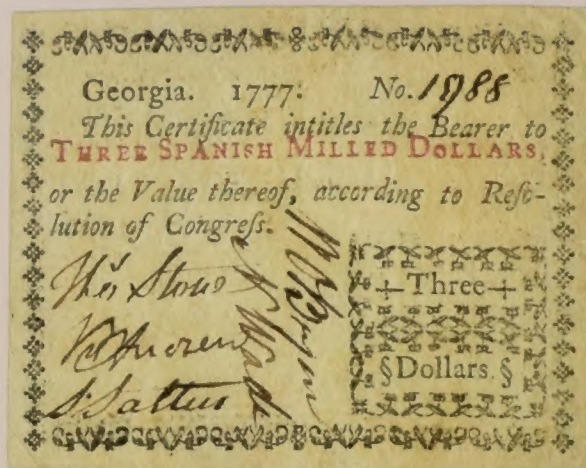 Georgia. 1777. No. 1988
This Certificate intitles the Bearer to
THREE SPANISH MILLED DOLLARS,
or the Value thereof, according to Reſo-
lution of Congreſs.
Thos Stone
Wm Andrew
S Saltus
N Wade
Three
§Dollars.§